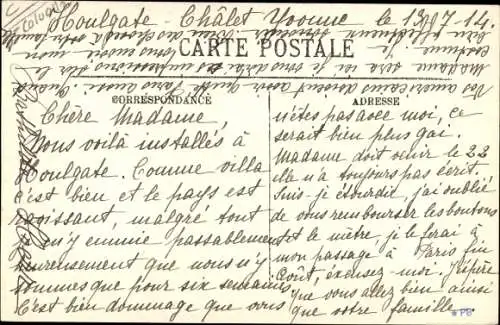 Houlgate - Châlet Yvonne le 13-7-14
CARTE POSTALE
CORRESPONDANCE
ADRESSE
Chère Madame,
Nous voilà installés à
Houlgate. Comme villa
c'est bien et le pays est
ravissant, malgré tout
m'y ennuie passablement
heureusement que nous n'y
sommes que pour six semaines.
C'est bien dommage que vous
n'êtes pas avec moi, ce
serait bien plus gai.
Madame doit venir le 22
elle n'a toujours pas écrit.
Suis-je étourdit, j'ai oublié
de vous rembourser les boutons
et le mètre, je le ferai à
mon passage à Paris fin
Août, excusez-moi. J'espère
que vous allez bien ainsi
que votre famille.
Nos américains doivent avoir quitté Paris
Madame sera ici je vous dirai